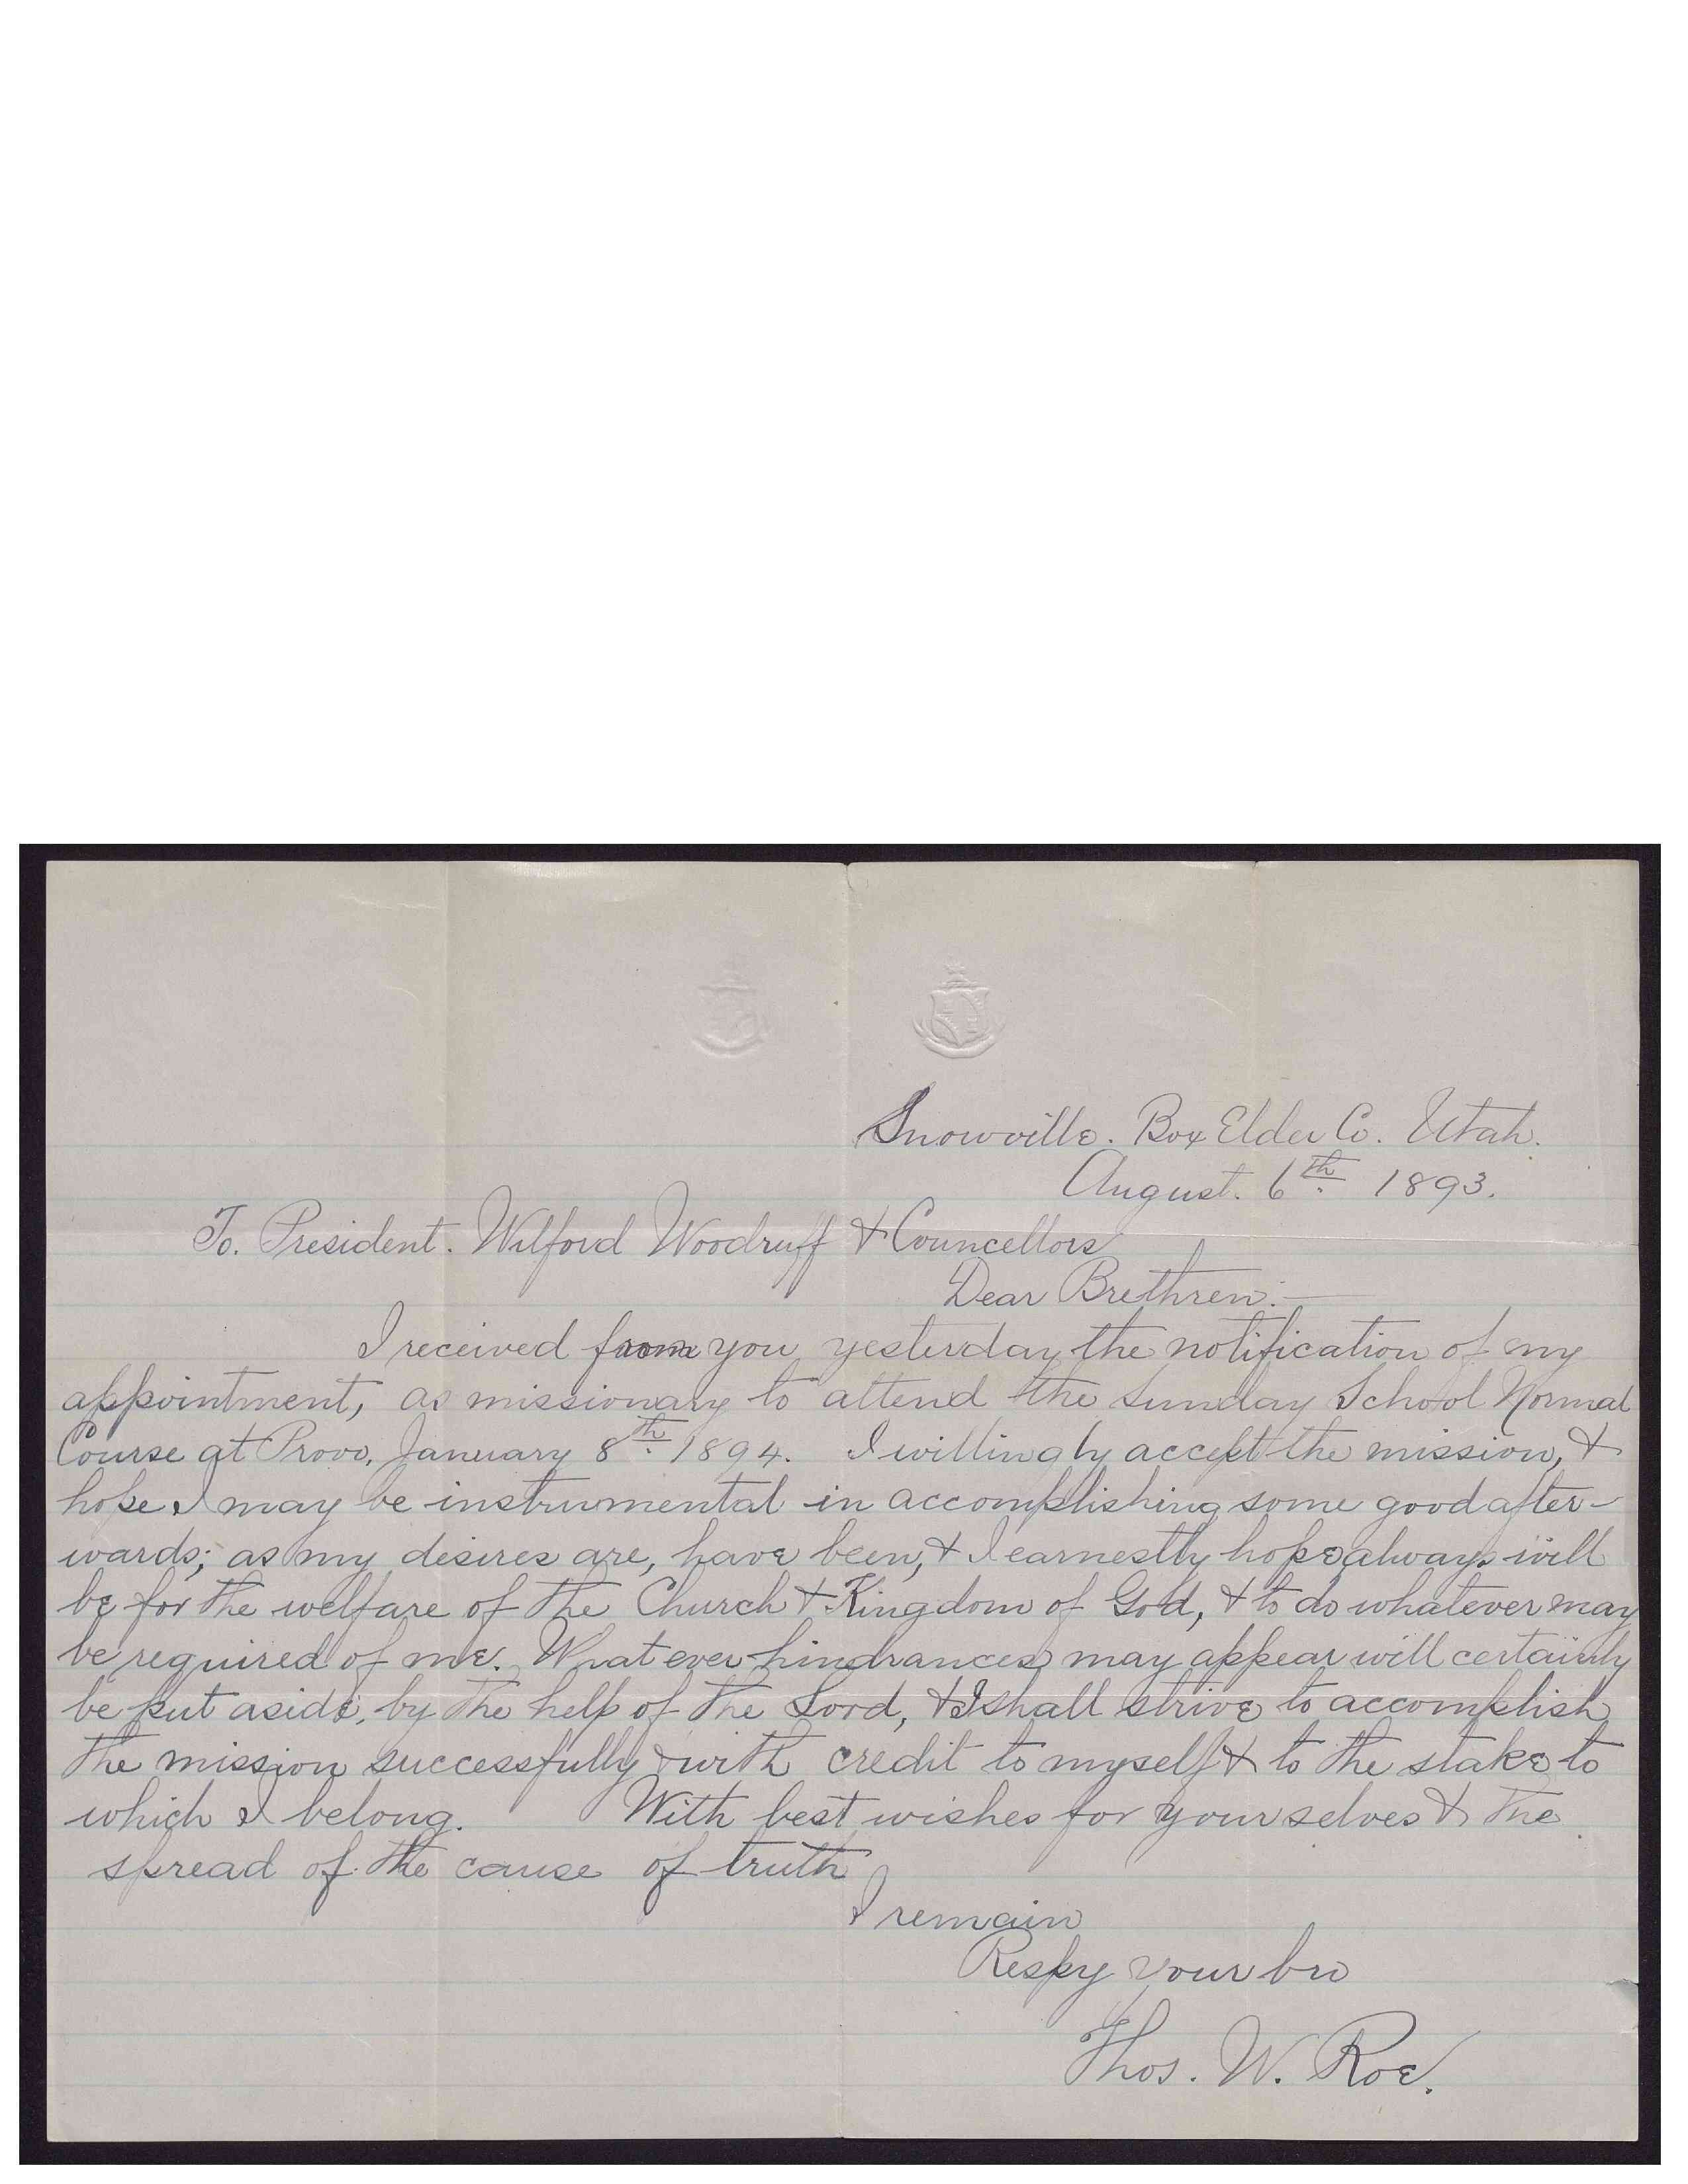 Snowville. Box Elder Co. Utah.
August. 6th 1893.
To. President. Wilford Woodruff & Councellors
Dear Brethren:—
I received from you yesterday the notification of my
appointment, as missionary to attend the Sunday School Normal
Course at Provo, January 8th 1894. I willingly accept the mission, &
hope I may be instrumental in accomplishing some good after-
wards; as my desires are, have been, & I earnestly hope always will
be for the welfare of the Church & Kingdom of God, & to do whatever may
be required of me. What ever hindrances may appear will certainly
be put aside, by the help of the Lord, & I shall strive to accomplish
the mission successfully & with credit to myself & to the stake to
which I belong. With best wishes for yourselves & the
spread of the cause of truth
I remain
Respy your bro
Thos. W. Roe.